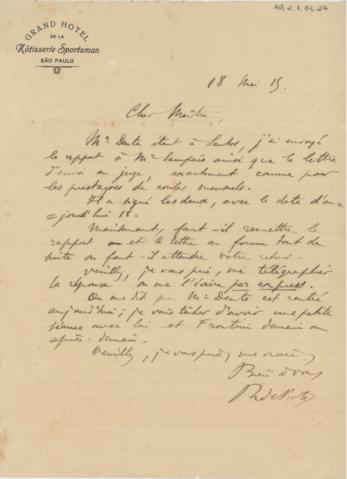 AG.V.1.14.27
GRAND HOTEL
DE LA
Rôtisserie Sportsman
SÃO PAULO
18 Mai 15
Cher Maître,
Mr Dente étant à Santos, j'ai envoyé
le rapport à Mr Sampaio ainsi que la lettre
d'envoi au juge, exactement comme pour
les prestações de contas mensuels.
Il a signé les deux, avec la date d'au=
=jourd'hui 18.
Maintenant, faut-il remettre le
rapport et la lettre au forum tout de
suite ou faut-il attendre votre retour
Veuillez, je vous prie, me télégraphier
la réponse ou me l'écrire par express.
On me dit que Mr Dente est rentré
aujourd'hui; je vais tâcher d'avoir une petite
séance avec lui et Frontini demain ou
après-demain.
Veuillez, je vous prie, me croire,
Bien à vous